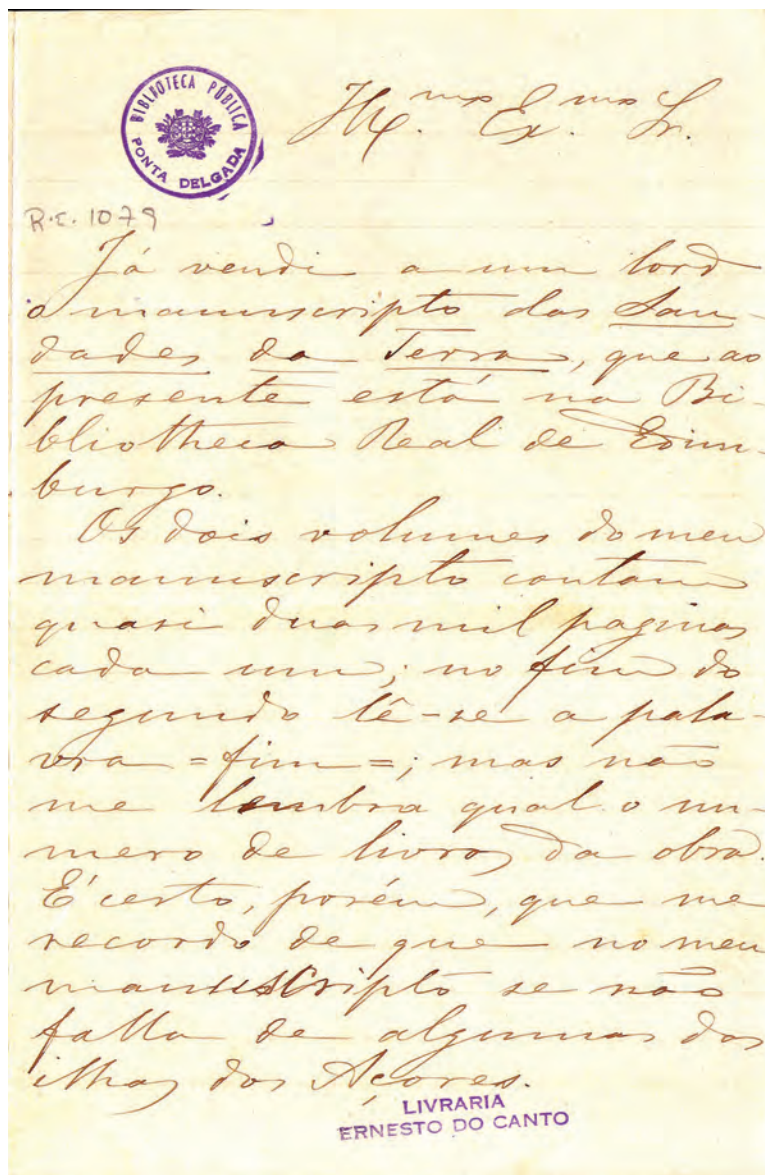 BIBLIOTECA PÚBLICA
PONTA DELGADA
Ill.mo Ex.mo Sr.
R.E. 1079
Já vendi a um lord
o manuscripto das Sau-
dades da Terra, que ao
presente está na Bi-
bliotheca Real de Edim-
burgo.
Os dois volumes do meu
manuscripto contam
quasi duas mil paginas
cada um; no fim do
segundo lê-se a pala-
vra =fim=; mas não
me lembra qual o nu-
mero de livros da obra.
É certo, porém, que me
recordo de que no meu
manuscripto se não
falla de algumas das
ilhas dos Açores.
LIVRARIA
ERNESTO DO CANTO